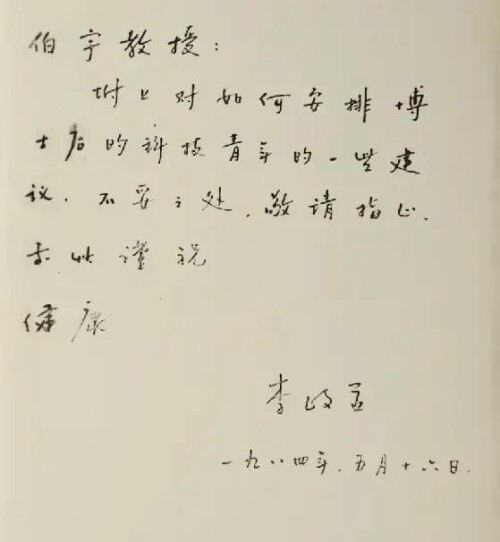 伯宇教授：
附上对如何安排博
士后的科技青年的一些建
议．不妥之处，敬请指正．
专此谨祝
健康
李政道
一九八四年．五月十六日．